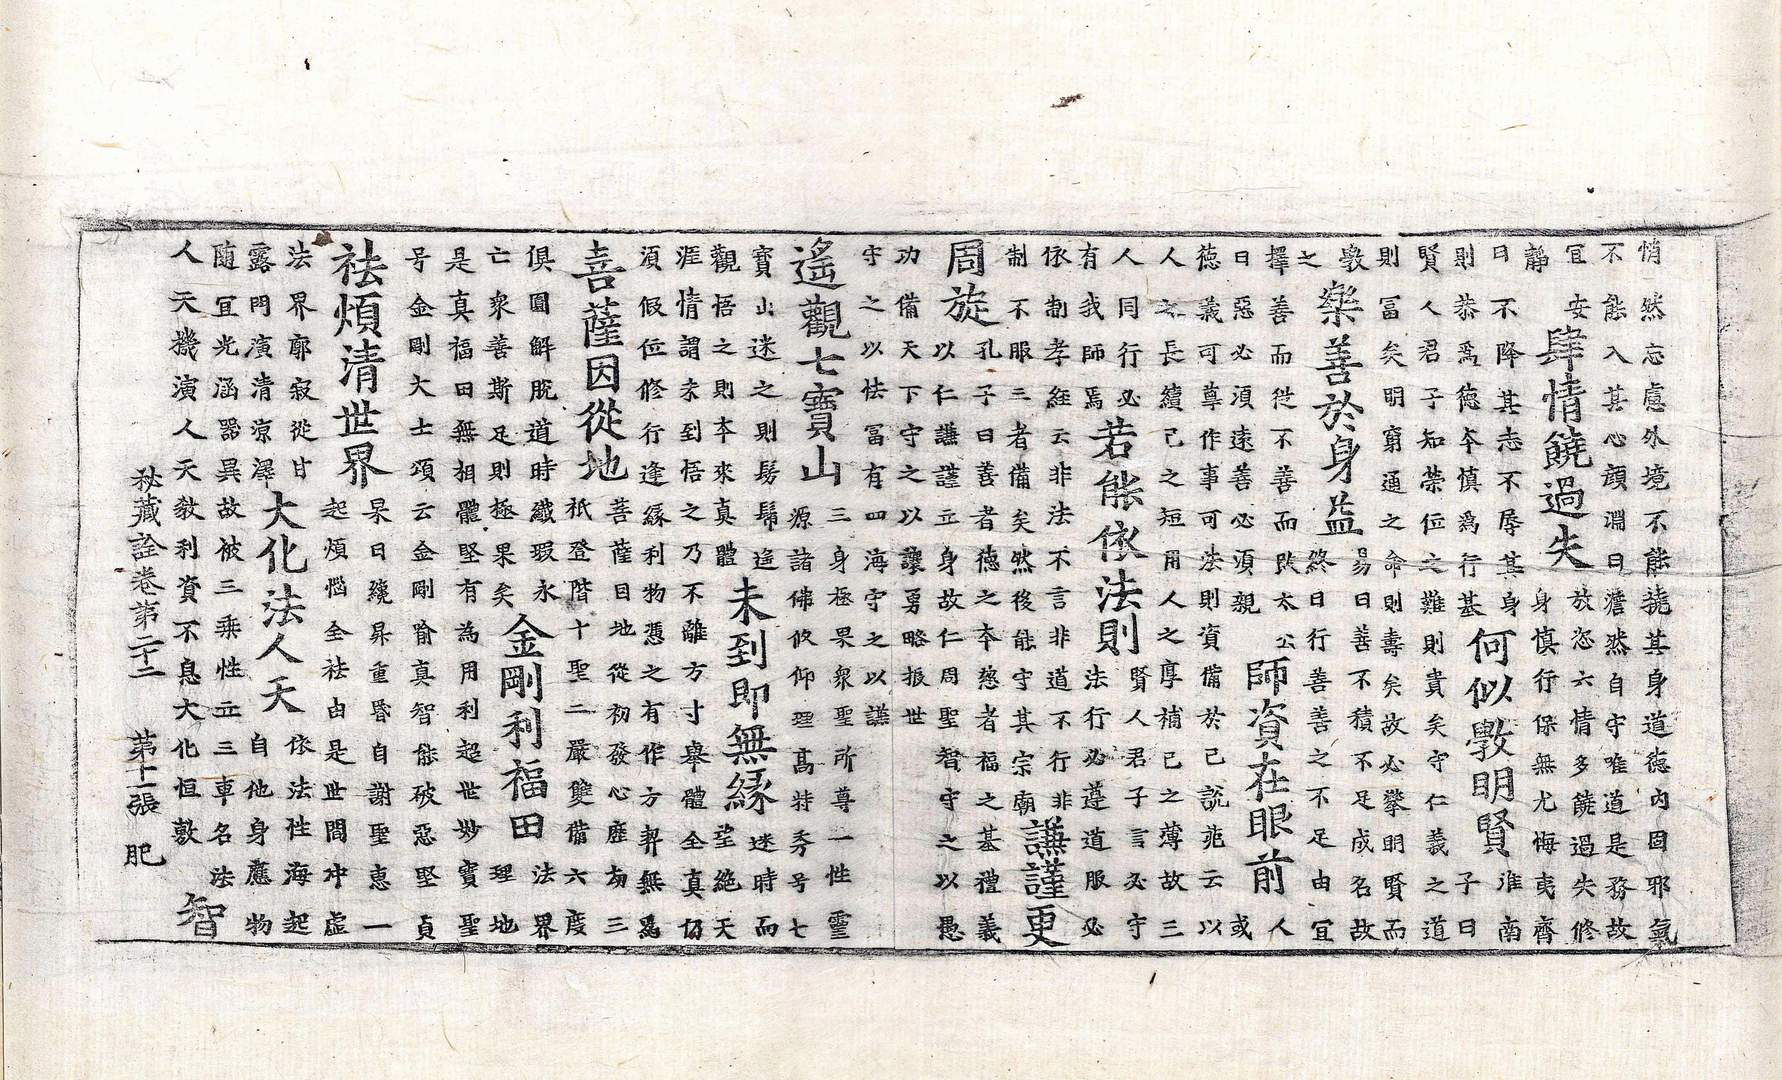 悄然忘慮外境不能撓其身道德内固邪氣
不能入其心顔淵曰澹然自守唯道是務故
宜安
静
肆情饒過失
放恣六情多饒過失修
身慎行保無尤悔夷齊
曰不降其志不辱其身
則恭爲德本慎爲行基
何似斅明賢
淮南
子曰
賢人君子知榮位之難則貴矣守仁義之道
則冨矣明窮通之命則壽矣故必擧明賢而
斅
之
樂善於身益
易曰善不積不足成名故
終日行善善之不足由宜
擇善而從不善而改太公
曰惡必須遠善必須親
師資在眼前
人
或
德義可尊作事可法則資備於己說苑云以
人之長續己之短用人之厚補己之薄故三
人同行必
有我師焉
若能依法則
賢人君子言必守
法行必遵道服必
依制孝經云非法不言非道不行非
制不服三者備矣然後能守其宗廟
謙謹更
周旋
孔子曰善者德之本慈者福之基禮義
以仁謙謹立身故仁周聖智守之以愚
功備天下守之以讓勇略振世
守之以怯冨有四海守之以謙
遙觀七寶山
三身極果衆聖所尊一性靈
源諸佛攸仰理髙特秀号七
寳山迷之則髣髴遙
觀悟之則本來真體
未到即無緣
迷時而
望絶天
涯情謂未到悟之乃不離方寸擧體全真切
須假位修行逢緣利物憑之有作方契無爲
菩薩因從地
菩薩目地從初發心歷劫三
祇登階十聖二嚴雙備六度
俱圓解脫道時纖瑕永
亡衆善斯足則極果矣
金剛利福田
法界
理地
是真福田無相體堅有為用利起世妙寳聖
号金剛大士頌云金剛喻真智能破惡堅貞
祛煩清世界
杲日纔昇重昬自謝聖惠一
起煩惱全祛由是世間冲虛
法界廓寂從甘
露門演清涼澤
大化法人天
依法性海起
自他身應物
随宜光涵器異故被三乘性立三車名法
人天機演人天敎利資不息大化恒敷
智
秘藏詮卷第二十二 第十一張 肥